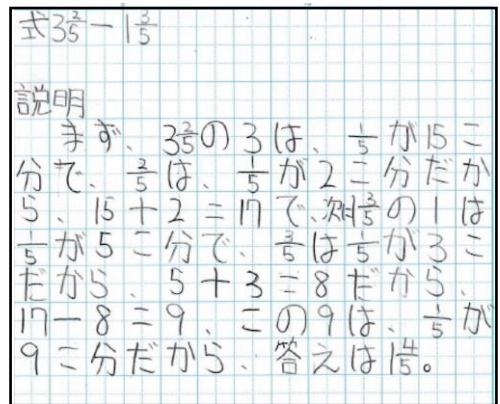 式3 2/5－1 3/5
説明
まず、3 2/5の3は、1/5が15こ
分で、2/5は、1/5が2こ分だか
ら、15＋2＝17で、次は1 3/5の1は
1/5が5こ分で、3/5は1/5が3こ
だから、5＋3＝8だから、
17－8＝9、この9は、1/5が
9こ分だから、答えは1 4/5。